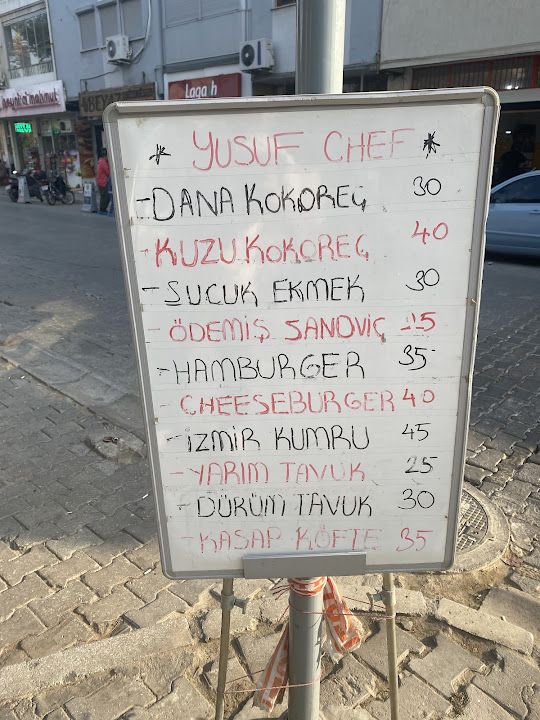 Laga h
* YUSUF CHEF *
- DANA KOKOREÇ 30
- KUZU KOKOREÇ 40
- SUCUK EKMEK 30
- ÖDEMİŞ SANDVİÇ 25
- HAMBURGER 35
- CHEESEBURGER 40
- İZMİR KUMRU 45
- YARIM TAVUK 25
- DÜRÜM TAVUK 30
- KASAP KÖFTE 35